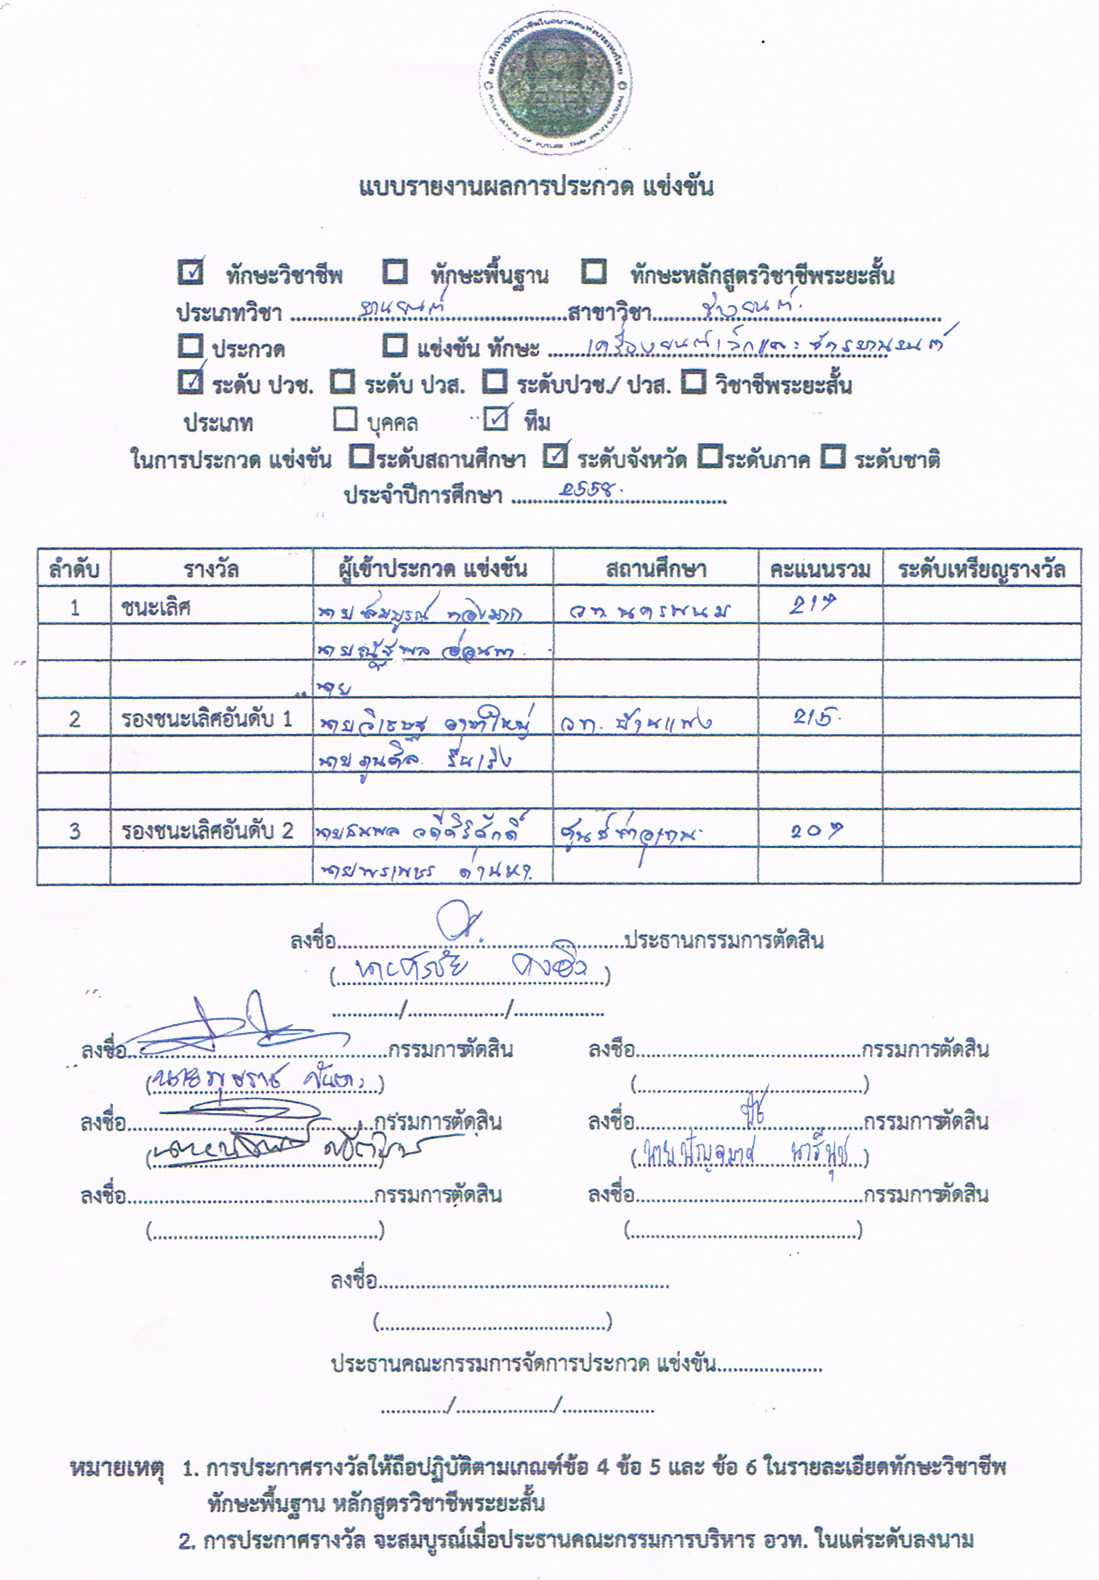 องค์การนักวิชาชีพในอนาคตแห่งประเทศไทย
ASSOCIATION OF FUTURE THAI PROFESSIONAL
แบบรายงานผลการประกวด แข่งขัน
☑ ทักษะวิชาชีพ ☐ ทักษะพื้นฐาน ☐ ทักษะหลักสูตรวิชาชีพระยะสั้น
ประเภทวิชา ยานยนต์ สาขาวิชา ช่างยนต์
☐ ประกวด ☐ แข่งขัน ทักษะ เครื่องยนต์เล็กและจักรยานยนต์
☑ ระดับ ปวช. ☐ ระดับ ปวส. ☐ ระดับปวช./ ปวส. ☐ วิชาชีพระยะสั้น
ประเภท ☐ บุคคล ☑ ทีม
ในการประกวด แข่งขัน ☐ระดับสถานศึกษา ☑ ระดับจังหวัด ☐ระดับภาค ☐ ระดับชาติ
ประจำปีการศึกษา 2558
ลำดับ รางวัล ผู้เข้าประกวด แข่งขัน สถานศึกษา คะแนนรวม ระดับเหรียญรางวัล
1 ชนะเลิศ นายสมบูรณ์ ทองมาก วท.นครพนม 217
นาย
นาย
2 รองชนะเลิศอันดับ 1 นาย วท. บ้านแพง 215
นาย รื่นเริง
3 รองชนะเลิศอันดับ 2 นายธนพล 207
นาย
ลงชื่อ ประธานกรรมการตัดสิน
(นาย)
............/................../.................
ลงชื่อ กรรมการตัดสิน ลงชื่อ กรรมการตัดสิน
(นาย) (..........)
ลงชื่อ กรรมการตัดสิน ลงชื่อ กรรมการตัดสิน
(นาย) (นาย นารีนุช)
ลงชื่อ กรรมการตัดสิน ลงชื่อ กรรมการตัดสิน
(..........) (..........)
ลงชื่อ..........
(..........)
ประธานคณะกรรมการจัดการประกวด แข่งขัน....................
............/................../.................
หมายเหตุ 1. การประกาศรางวัลให้ถือปฏิบัติตามเกณฑ์ข้อ 4 ข้อ 5 และ ข้อ 6 ในรายละเอียดทักษะวิชาชีพ
ทักษะพื้นฐาน หลักสูตรวิชาชีพระยะสั้น
2. การประกาศรางวัล จะสมบูรณ์เมื่อประธานคณะกรรมการบริหาร อวท. ในแต่ระดับลงนาม